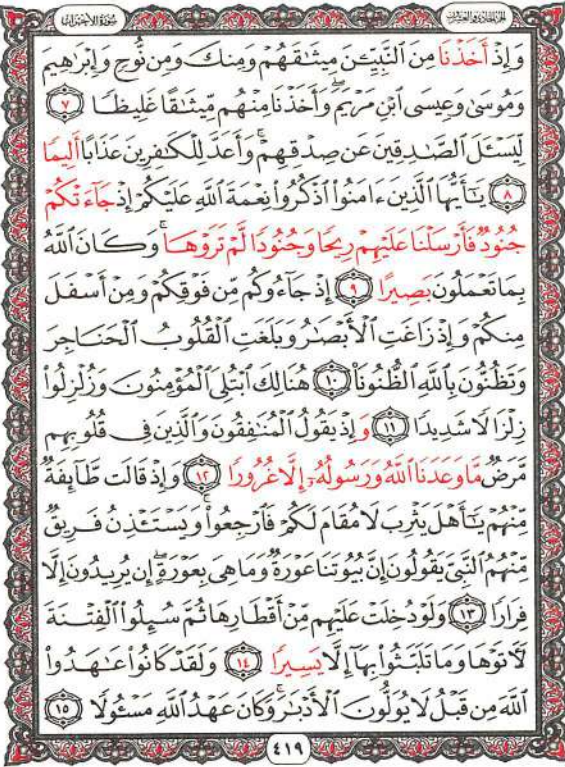 سُورَةُ الأَحْزَاب
الجزء الحادي والعشرون
وَإِذْ أَخَذْنَا مِنَ ٱلنَّبِيِّـۧنَ مِيثَٰقَهُمْ وَمِنكَ وَمِن نُّوحٍ وَإِبْرَٰهِيمَ
وَمُوسَىٰ وَعِيسَى ٱبْنِ مَرْيَمَۖ وَأَخَذْنَا مِنْهُم مِّيثَٰقًا غَلِيظًا ٧
لِّيَسْـَٔلَ ٱلصَّٰدِقِينَ عَن صِدْقِهِمْۚ وَأَعَدَّ لِلْكَٰفِرِينَ عَذَابًا أَلِيمًا
٨ يَٰٓأَيُّهَا ٱلَّذِينَ ءَامَنُوا۟ ٱذْكُرُوا۟ نِعْمَةَ ٱللَّهِ عَلَيْكُمْ إِذْ جَآءَتْكُمْ
جُنُودٌ فَأَرْسَلْنَا عَلَيْهِمْ رِيحًا وَجُنُودًا لَّمْ تَرَوْهَاۚ وَكَانَ ٱللَّهُ
بِمَا تَعْمَلُونَ بَصِيرًا ٩ إِذْ جَآءُوكُم مِّن فَوْقِكُمْ وَمِنْ أَسْفَلَ
مِنكُمْ وَإِذْ زَاغَتِ ٱلْأَبْصَٰرُ وَبَلَغَتِ ٱلْقُلُوبُ ٱلْحَنَاجِرَ
وَتَظُنُّونَ بِٱللَّهِ ٱلظُّنُونَا۠ ١٠ هُنَالِكَ ٱبْتُلِىَ ٱلْمُؤْمِنُونَ وَزُلْزِلُوا۟
زِلْزَالًا شَدِيدًا ١١ وَإِذْ يَقُولُ ٱلْمُنَٰفِقُونَ وَٱلَّذِينَ فِى قُلُوبِهِم
مَّرَضٌ مَّا وَعَدَنَا ٱللَّهُ وَرَسُولُهُۥٓ إِلَّا غُرُورًا ١٢ وَإِذْ قَالَت طَّآئِفَةٌ
مِّنْهُمْ يَٰٓأَهْلَ يَثْرِبَ لَا مُقَامَ لَكُمْ فَٱرْجِعُوا۟ۚ وَيَسْتَـْٔذِنُ فَرِيقٌ
مِّنْهُمُ ٱلنَّبِىَّ يَقُولُونَ إِنَّ بُيُوتَنَا عَوْرَةٌ وَمَا هِىَ بِعَوْرَةٍۖ إِن يُرِيدُونَ إِلَّا
فِرَارًا ١٣ وَلَوْ دُخِلَتْ عَلَيْهِم مِّنْ أَقْطَارِهَا ثُمَّ سُئِلُوا۟ ٱلْفِتْنَةَ
لَـَٔاتَوْهَا وَمَا تَلَبَّثُوا۟ بِهَآ إِلَّا يَسِيرًا ١٤ وَلَقَدْ كَانُوا۟ عَٰهَدُوا۟
ٱللَّهَ مِن قَبْلُ لَا يُوَلُّونَ ٱلْأَدْبَٰرَۚ وَكَانَ عَهْدُ ٱللَّهِ مَسْـُٔولًا ١٥
٤١٩